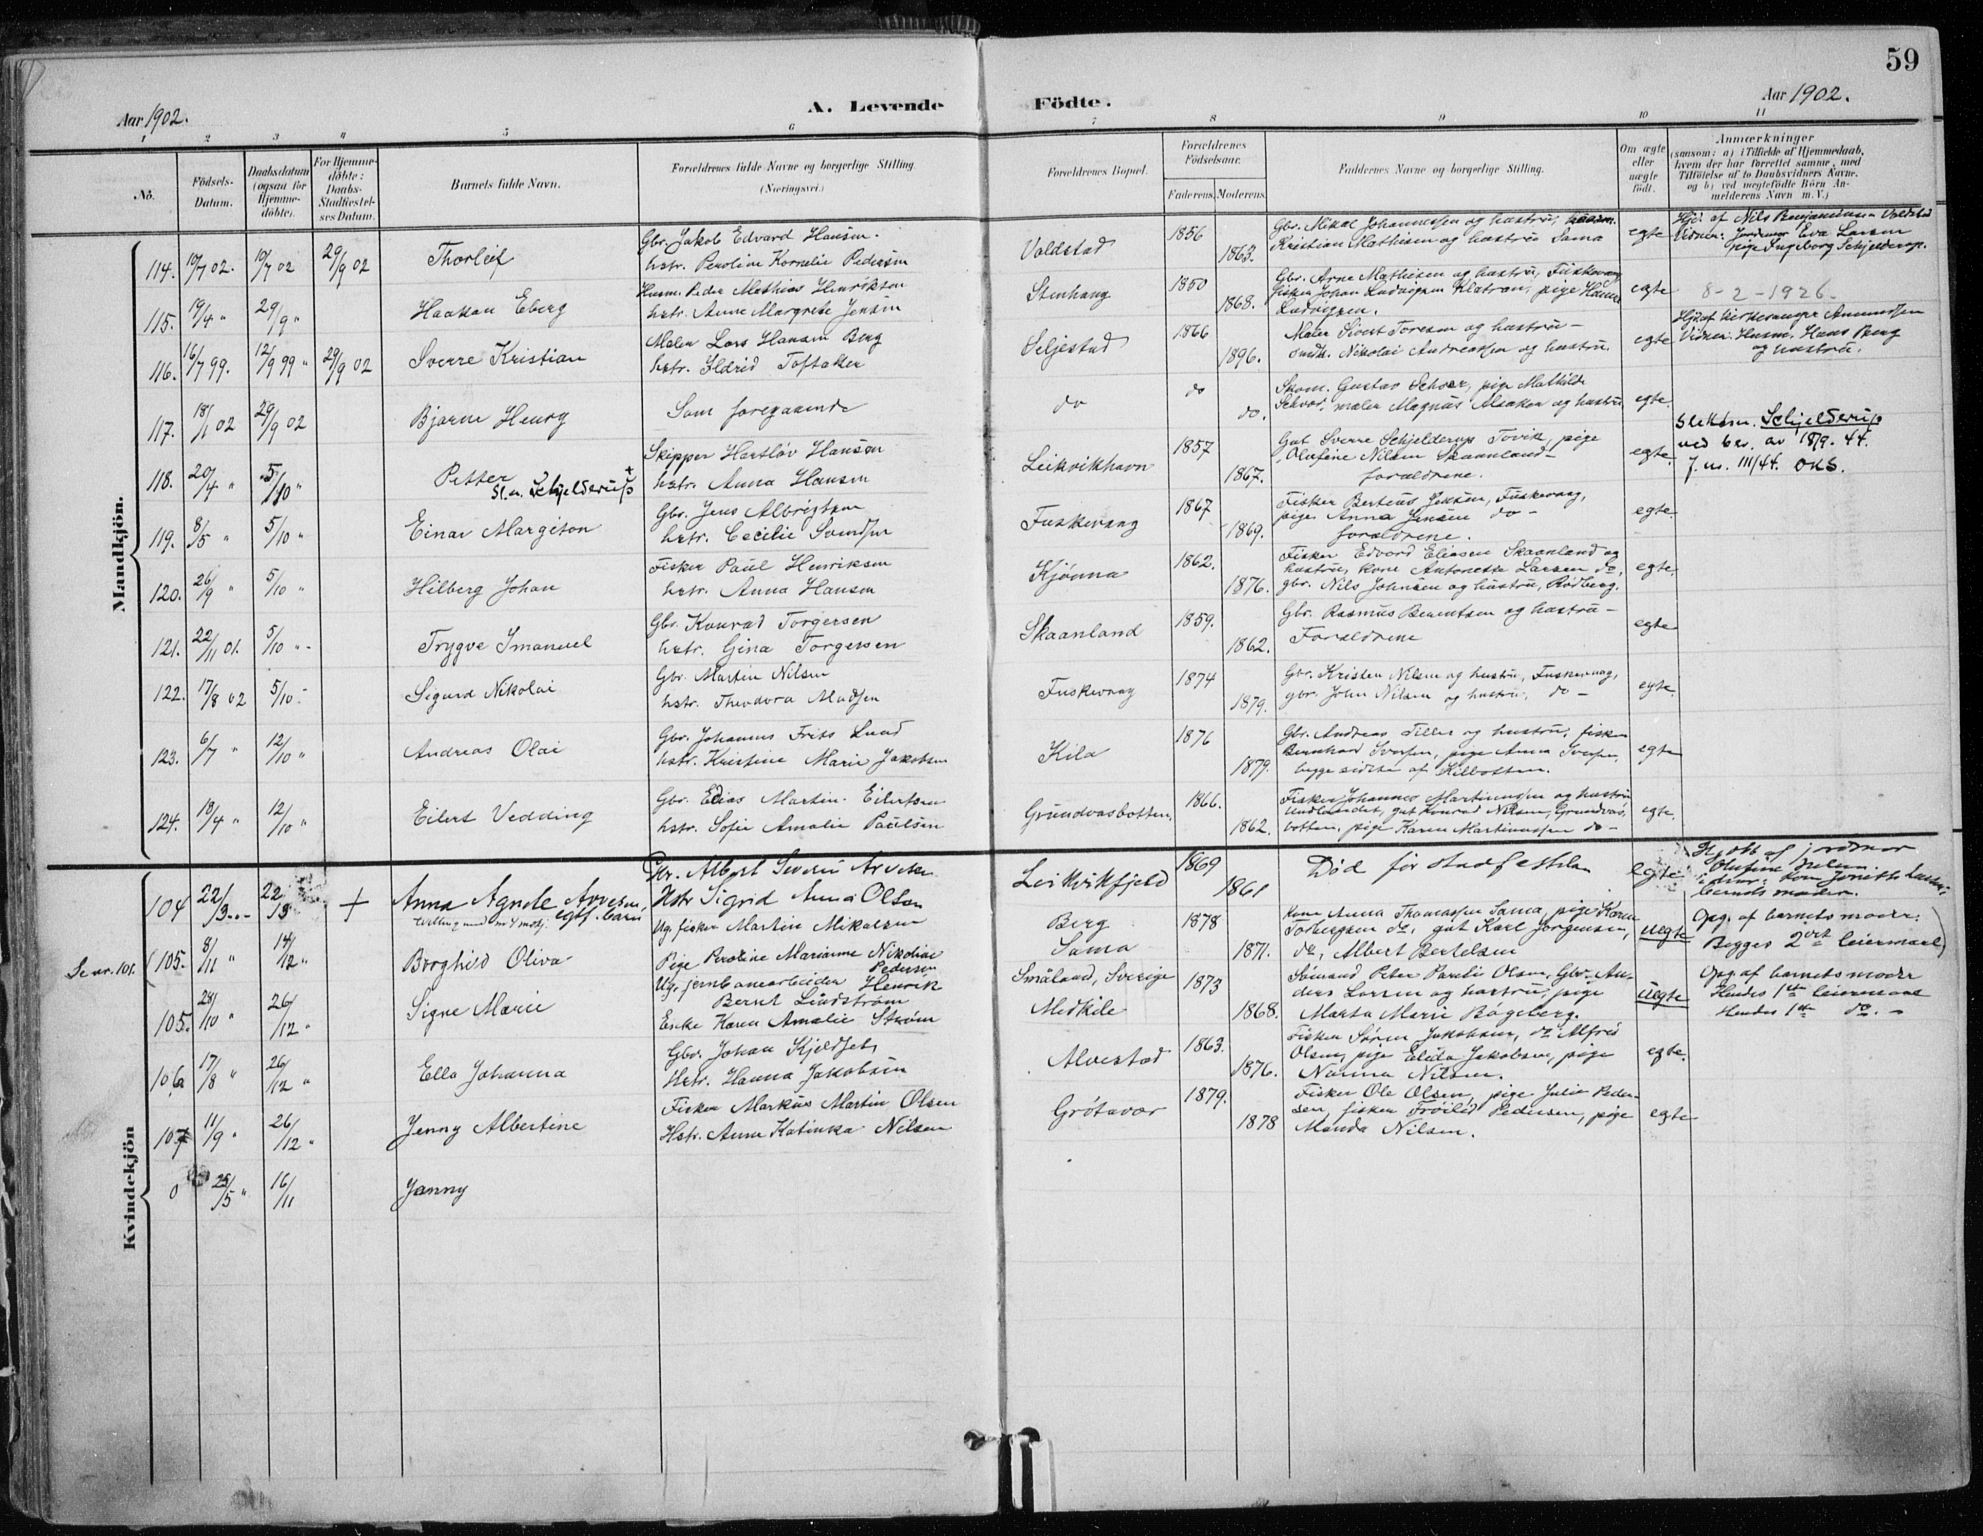 59
A. Levende Födte.
Aar 1902.
Aar 1902.
1 2 3 4 5 6 7 8 9 10 11
No.
Födsels-Datum.
Daabsdatum (ogsaa for Hjemmedöbte).
For Hjemmedöbte: Daabs-Stadfæstelses Datum.
Barnets fulde Navn.
Forældrenes fulde Navne og borgerlige Stilling.
(Næringsvei.)
Forældrenes Bopæl.
Forældrenes Födselsaar.
Faderens. Moderens.
Faddernes Navne og borgerlige Stilling.
Om ægte eller uægte födt.
Anmærkninger
(saasom: a) i Tilfælde af Hjemmedaab, hvem der har forrettet samme, med Tilföielse af to Daabsvidners Navne, og b) ved uægtefödte Börn Anmelderens Navn m. V.)
Mandkjön.
114. 10/7 02. 10/7 02 29/9 02 Thorleif
Gbr. Jakob Edvard Hansen.
hstr. Peroline Kornelie Pedersen
Voldstad 1856 1863.
Gbr. Mikal Johannessen og hustru,
Kristian Mathisen og hustru Sama
egte
Hjd af Nils Benjaminsen Voldstad
Vidner: Jordmor Eva Larsen
pige Ingeborg Schjelderup.
115. 19/4 " 29/9 " Haakon Eberg
Husm. Peder Mathias Henrikson
hstr. Anne Margrete Jensen
Stenhaug 1850 1868.
Gbr. Arne Mathisen og hustru, Fuskevaag
fisker Johan Ludvigsen Klatran, pige Hanna
Ludvigsen.
egte
8-2-1926.
116. 16/7 99. 12/9 99 " 29/9 02 Sverre Kristian
Maler Lars Hansen Berg
hstr. Ildrid Toftaker
Seljestad 1866 1896.
Maler Sivert Toresen og hustru –
smedk. Nikolai Andreassen og hustru.
egte
Hjd af kirkesanger Amundsen
Vidner: Husm. Hans Berg
og hustru.
117. 18/1 02 29/9 02 Bjarne Henry
Som foregaaende
do do do.
Skom. Gustav Schaer, pige Mathilde
maler Magnus Alsaker og hustru
egte.
118. 20/4 " 5/10 " Petter +
Sl.n. Schjelderup
Skipper Hartløv Hansen
hstr. Anna Hansen
Leikvikhavn 1857 1867.
Gut Sverre Schjelderup Tovik, pige
Olufine Nilsen Skaanland –
forældrene.
egte.
Slektsn. Schjelderup
ved bev. av 18/9-44.
J.nr. 111/44. OKS.
119. 8/5 " 5/10 " Einar Margiton
Gbr. Jens Albrigtsen
hstr. Cecilie Svendsen
Fuskevaag 1867 1869.
Fisker Berteus Jensen, Fuskevaag,
pige Anna Jensen do –
forældrene.
egte.
120. 26/9 " 5/10 " Hilberg Johan
Fisker Paul Henriksen
hstr. Anna Hansen
Kjønna 1862. 1876.
Fisker Edvard Eliasen Skaanland og
hustru, kone Antonette Larsen do,
gbr. Nils Johnsen og hustru, Rødberg.
egte.
121. 22/11 01. 5/10 " Trygve Imanuel
Gbr. Konrad Torgersen
hstr. Gina Torgersen
Skaanland 1859. 1862.
Gbr. Rasmus Berentsen og hustru –
Forældrene
egte
122. 17/8 02 5/10 - Sigurd Nikolai
Gbr. Martin Nilsen
hstr. Theodora Madsen
Fuskevaag 1874 1879.
Gbr. Kristen Nilsen og hustru, Fuskevaag,
gbr. John Nilsen og hustru, do –
egte.
123. 6/7 " 12/10 " Andreas Olai
Gbr. Johannes Frits Lund
hstr. Kristine Marie Jakobsen
Kila 1876 1879.
Gbr. Andreas Tiller og hustru, fisker
Bernhard Iversen, pige Anna Iversen,
begge sidste af Kilbotten.
egte
124. 19/4 " 12/10 " Eilert Vedding
Gbr. Edias Martin Eilertsen
hstr. Sofie Amalie Paulsen
Grundvasbotten. 1866. 1862.
Fisker Johannes Martinussen og hustru
Undlandet, gut Konrad Nilsen, Grundvas-
botten, pige Karen Martinussen do –
egte.
Kvindekjön
104 22/3 - - 22/3 + Anna Agnete Arvesen,
egtf. barn
Gbr. Albert Severin Arvesen
Hstr Sigrid Anna Olsen
Leikvikfjeld 1869 1861
Død før stadfestelsen
egte
Hj.døbt af jordmor
Olufine Nielsen.
barnets moder.
Se nr. 101. (105. 8/11 " 14/12 " Borghild Oliva
Ug. fisker Martin Mikalsen
Pige Peroline Marianne Nikoline
Pedersen
Berg
Sama 1878 1871.
Kone Anna Thomassen Sama, pige Karen
Torbergsen do, gut Karl Jørgensen,
do, Albert Bertelsen
uegte
Opg. af barnets moder.
Begges 2det leiermaal)
105. 24/10 " 26/12 " Signe Marie
Ug. jernbanearbeider Henrik
Bernt Lindstrøm
Enke Karen Amalie Strøm
Småland, Sverige
Medkile 1873 1868.
Sømand Peter Parelii Olsen, Gbr. An-
ders Larsen og hustru, pige
Marta Marie Bogeberg.
Uegte
Opg. af barnets moder
Hendes 1ste leiermaal
Hendes 1ste do. –
106 17/8 " 26/12 " Ella Johanna
Gbr. Johan Kjeldsen
Hstr. Hanna Jakobsen
Alvestad 1863. 1876.
Fisker Søren Jakobsen, do Alfred
Olsen, pige Elida Jakobsen, pige
Nanna Nilsen.
egte.
107 11/9 " 26/12 " Jenny Albertine
Fisker Markus Martin Olsen
Hstr. Anne Katinka Nilsen
Grøtavær 1879. 1878
Fisker Ole Olsen, pige Julie Peder-
sen, fisker Frøilid Pedersen, pige
Manda Nilsen.
egte
0 25/5 " 16/11 Janny